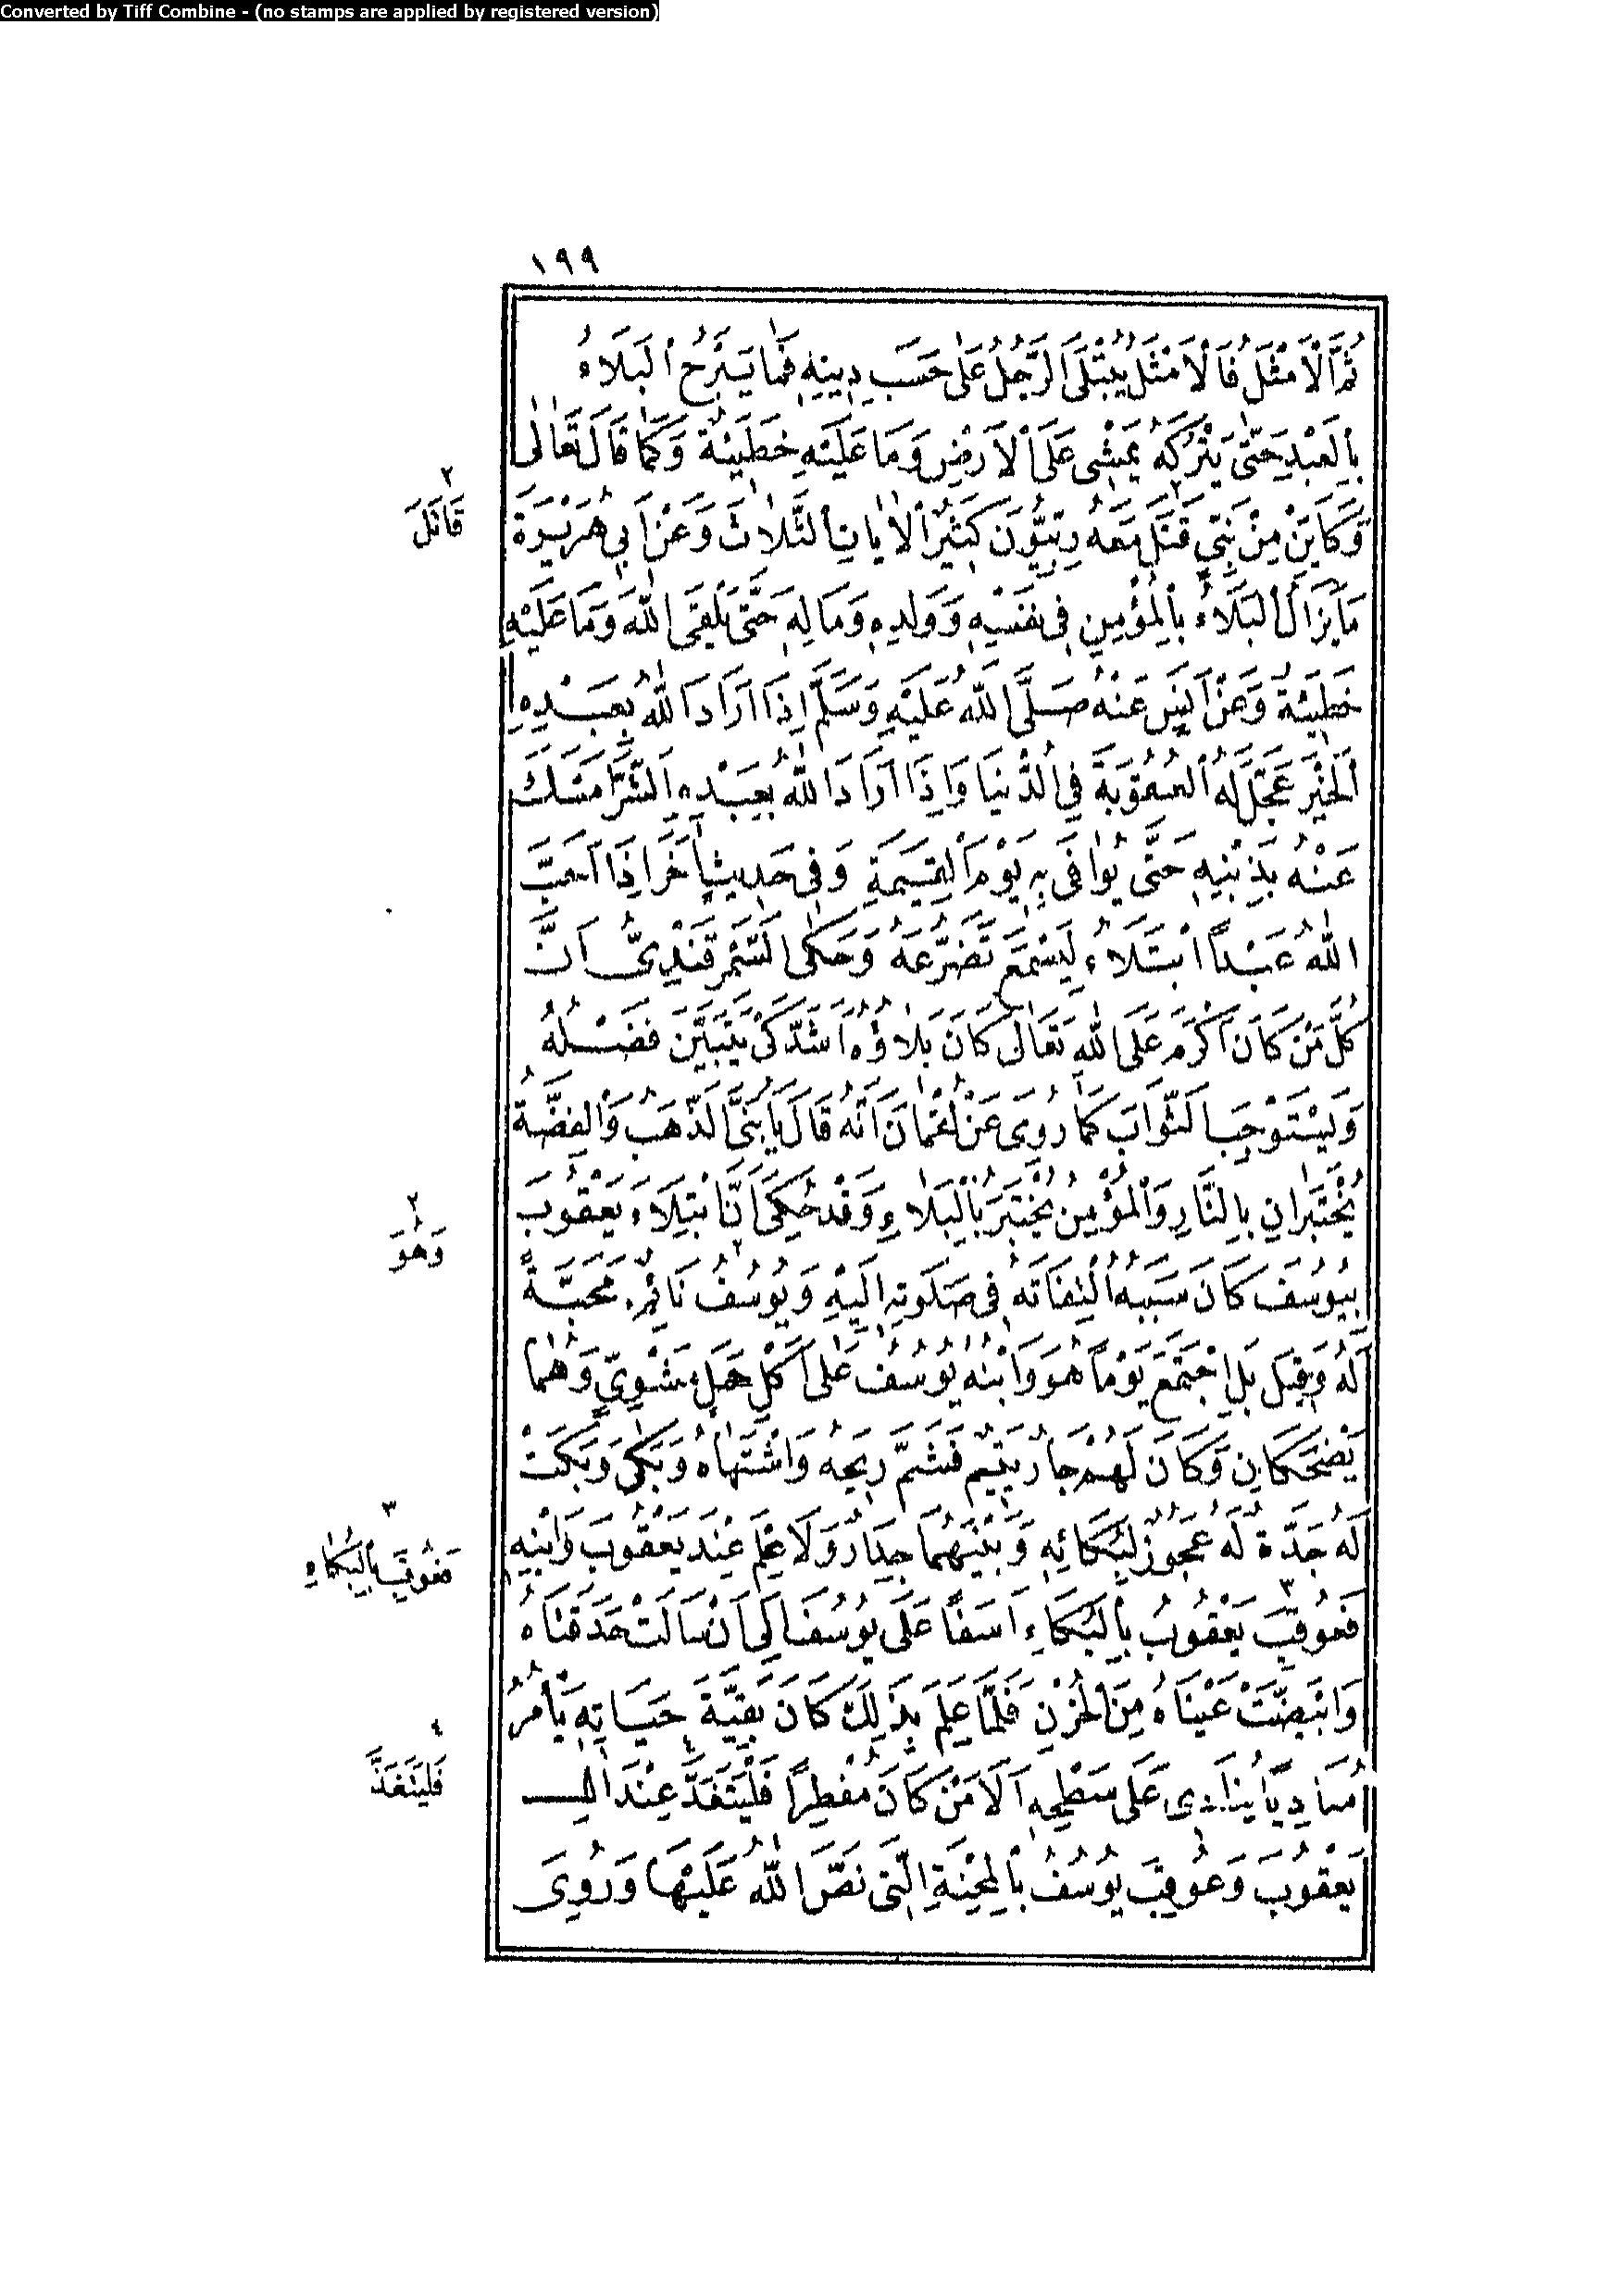 Converted by Tiff Combine - (no stamps are applied by registered version)
١٩٩
ثُمَّ الْأَمْثَلُ فَالْأَمْثَلُ يُبْتَلَى الرَّجُلُ عَلَى حَسَبِ دِينِهِ فَمَا يَبْرَحُ الْبَلَاءُ
بِالْعَبْدِ حَتَّى يَتْرُكَهُ يَمْشِى عَلَى الْأَرْضِ وَمَا عَلَيْهِ خَطِيئَةٌ وَكَمَا قَالَ تَعَالَى
وَكَأَيِّنْ مِنْ نَبِيٍّ قُتِلَ مَعَهُ رِبِّيُّونَ كَثِيرٌ الْآيَاتِ الثَّلَاثَ وَعَنْ أَبِي هُرَيْرَةَ
مَا يَزَالُ الْبَلَاءُ بِالْمُؤْمِنِ فِى نَفْسِهِ وَوَلَدِهِ وَمَالِهِ حَتَّى يَلْقَى اللهَ وَمَا عَلَيْهِ
خَطِيئَةٌ وَعَنْ أَنَسٍ عَنْهُ صَلَّى اللهُ عَلَيْهِ وَسَلَّمَ إِذَا أَرَادَ اللهُ بِعَبْدِهِ
الْخَيْرَ عَجَّلَ لَهُ الْعُقُوبَةَ فِى الدُّنْيَا وَإِذَا أَرَادَ اللهُ بِعَبْدِهِ الشَّرَّ أَمْسَكَ
عَنْهُ بِذَنْبِهِ حَتَّى يُوَافَى بِهِ يَوْمَ الْقِيَمَةِ وَفِى حَدِيثٍ آخَرَ إِذَا أَحَبَّ
اللهُ عَبْدًا ابْتَلَاهُ لِيَسْمَعَ تَضَرُّعَهُ وَحَكَى السَّمَرْقَنْدِىُّ أَنَّ
كُلَّ مَنْ كَانَ أَكْرَمَ عَلَى اللهِ تَعَالَى كَانَ بَلَاؤُهُ أَشَدَّ كَىْ يَتَبَيَّنَ فَضْلُهُ
وَيَسْتَوْجِبَ الثَّوَابَ كَمَا رُوِىَ عَنْ لُقْمَانَ أَنَّهُ قَالَ يَا بُنَىَّ الذَّهَبُ وَالْفِضَّةُ
يُخْتَبَرَانِ بِالنَّارِ وَالْمُؤْمِنُ يُخْتَبَرُ بِالْبَلَاءِ وَقَدْ حُكِىَ أَنَّ ابْتِلَاءَ يَعْقُوبَ
بِيُوسُفَ كَانَ سَبَبُهُ الْتِفَاتَهُ فِى صَلَوتِهِ إِلَيْهِ وَيُوسُفُ نَائِمٌ مَحَبَّةً
لَهُ وَقِيلَ بَلِ اجْتَمَعَ يَوْمًا هُوَ وَابْنُهُ يُوسُفُ عَلَى أَكْلِ حَمَلٍ مَشْوِيٍّ وَهُمَا
يَضْحَكَانِ وَكَانَ لَهُمْ جَارٌ يَتِيمٌ فَشَمَّ رِيحَهُ وَاشْتَهَاهُ وَبَكَى وَبَكَتْ
لَهُ جَدَّةٌ لَهُ عَجُوزٌ لِبُكَائِهِ وَبَيْنَهُمَا جِدَارٌ وَلَا عِلْمَ عِنْدَ يَعْقُوبَ وَابْنِهِ
فَعُوقِبَ يَعْقُوبُ بِالْبُكَاءِ أَسَفًا عَلَى يُوسُفَ إِلَى أَنْ سَالَتْ حَدَقَتَاهُ
وَابْيَضَّتْ عَيْنَاهُ مِنَ الْحُزْنِ فَلَمَّا عَلِمَ بِذَلِكَ كَانَ بَقِيَّةَ حَيَاتِهِ يَأْمُرُ
مُنَادِيًا يُنَادِى عَلَى سَطْحِهِ أَلَا مَنْ كَانَ مُفْطِرًا فَلْيَتَغَدَّ عِنْدَ آلِ
يَعْقُوبَ وَعُوقِبَ يُوسُفُ بِالْمِحْنَةِ الَّتِى نَصَّ اللهُ عَلَيْهَا وَرُوِىَ
٢
قَاتَلَ
٢
وَهُوَ
٣
فَعُوقِبَ بِالْبُكَاءِ
٤
فَلْيَتَغَذَّ